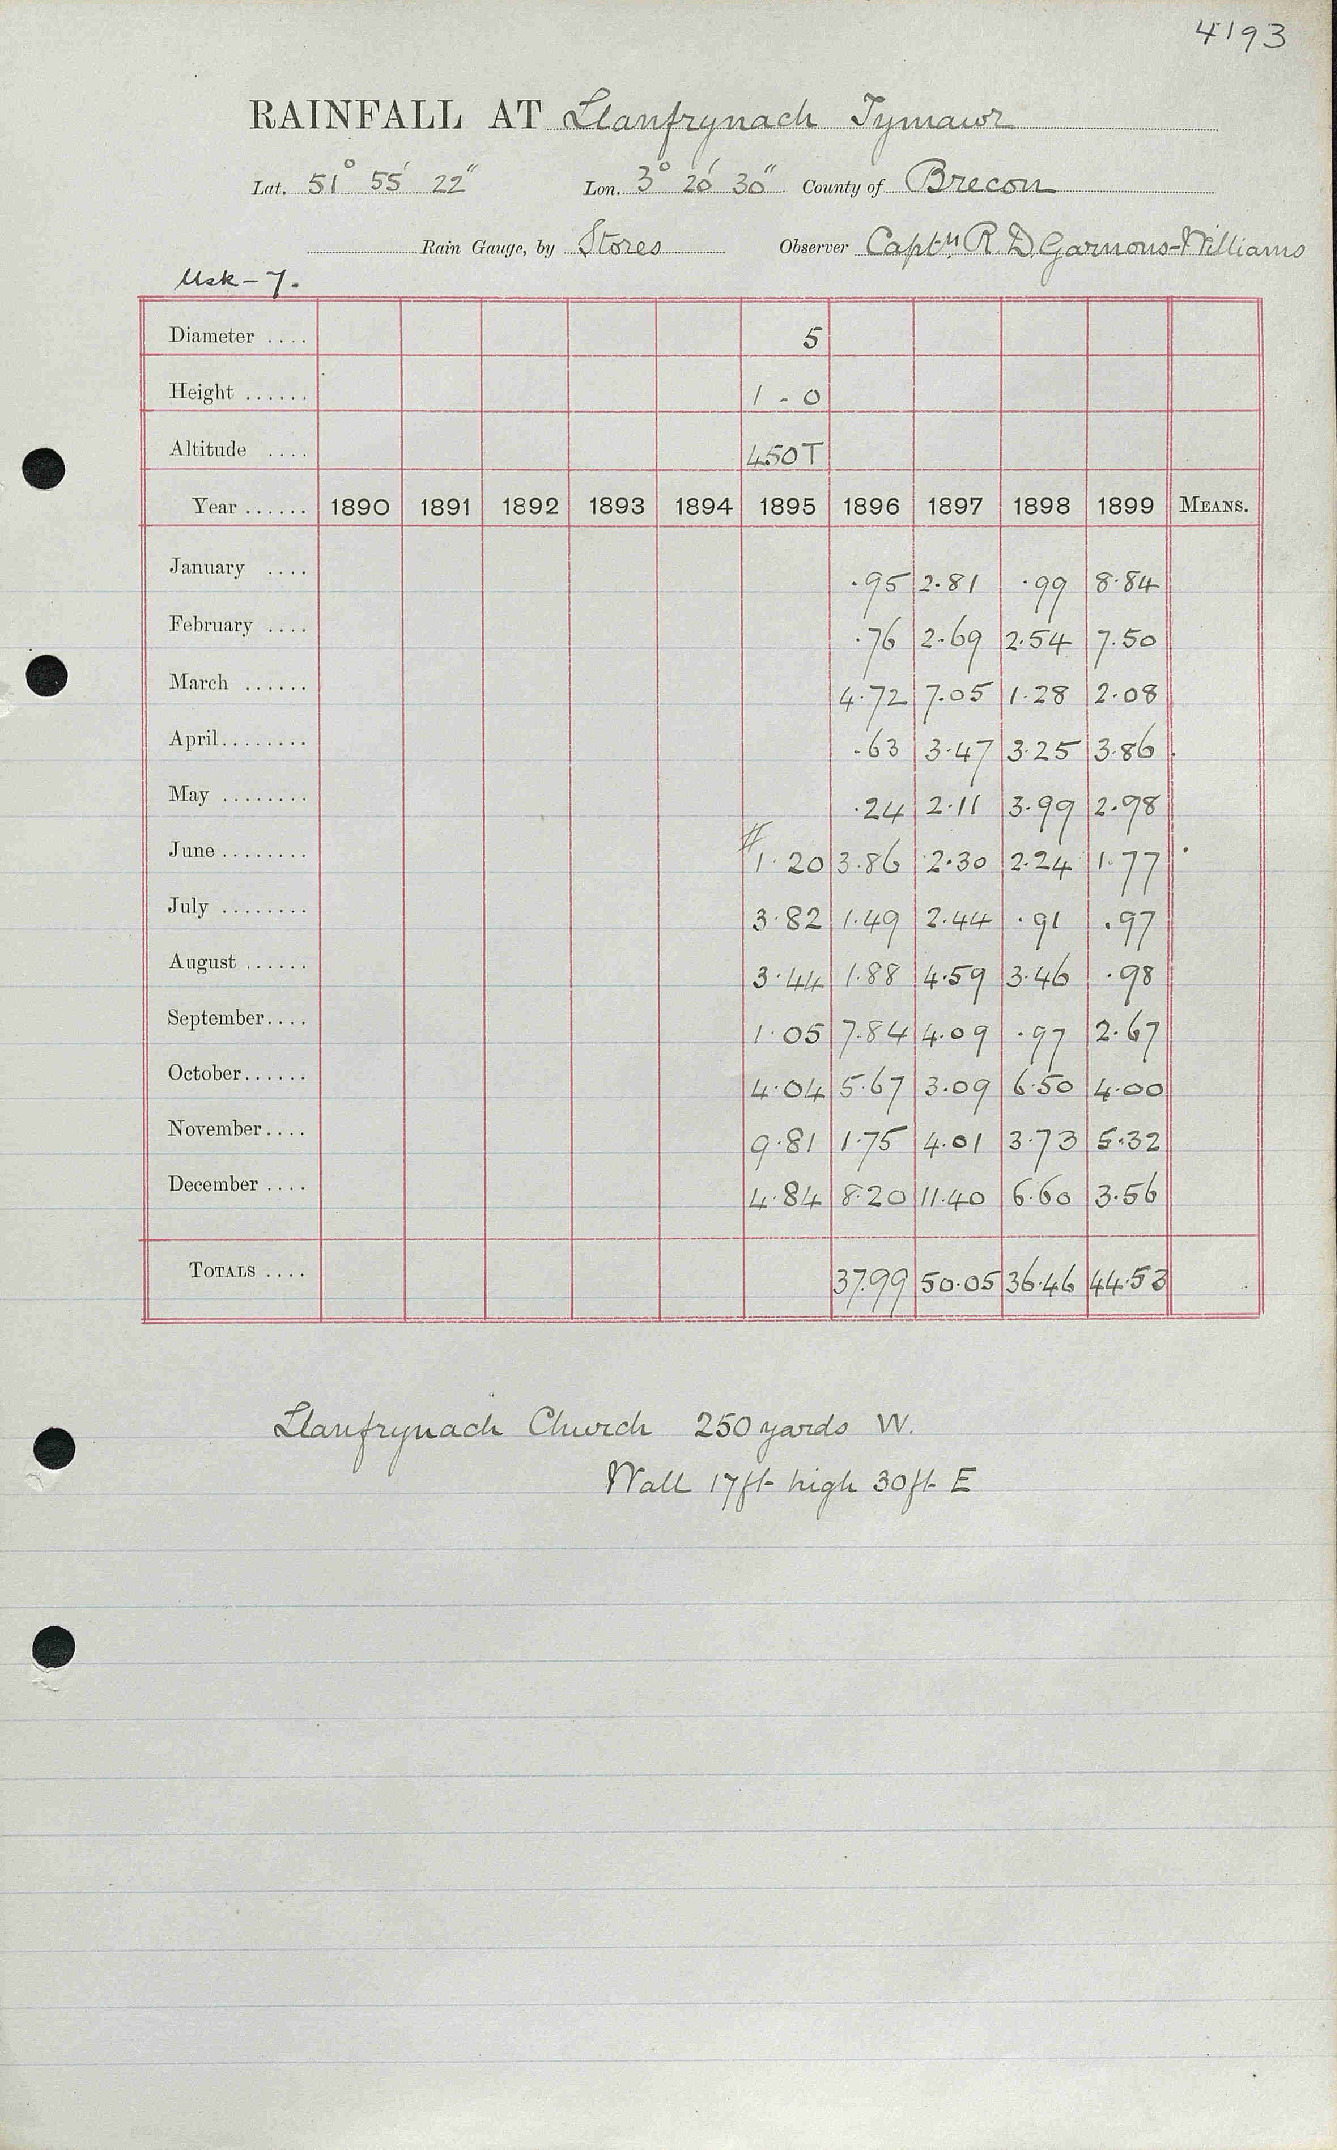 4193
RAINFALL AT Llanfrynach Tymawr
Lat. 51° 55' 22" Lon. 3° 20' 30" County of Brecon
Rain Gauge, by Stores Observer Captn. R. D. Garnons-Williams
Usk - 7.
Diameter .... 5
Height ...... 1 - 0
Altitude .... 450T
Year ...... 1890 1891 1892 1893 1894 1895 1896 1897 1898 1899 MEANS.
January .... .95 2.81 .99 8.84
February .... .76 2.69 2.54 7.50
March ...... 4.72 7.05 1.28 2.08
April........ .63 3.47 3.25 3.86
May ........ .24 2.11 3.99 2.98
June ........ # 1.20 3.86 2.30 2.24 1.77
July ........ 3.82 1.49 2.44 .91 .97
August ...... 3.44 1.88 4.59 3.46 .98
September.... 1.05 7.84 4.09 .97 2.67
October...... 4.04 5.67 3.09 6.50 4.00
November.... 9.81 1.75 4.01 3.73 5.32
December .... 4.84 8.20 11.40 6.60 3.56
TOTALS .... 37.99 50.05 36.46 44.53
Llanfrynach Church 250 yards W.
Wall 17ft high 30ft E